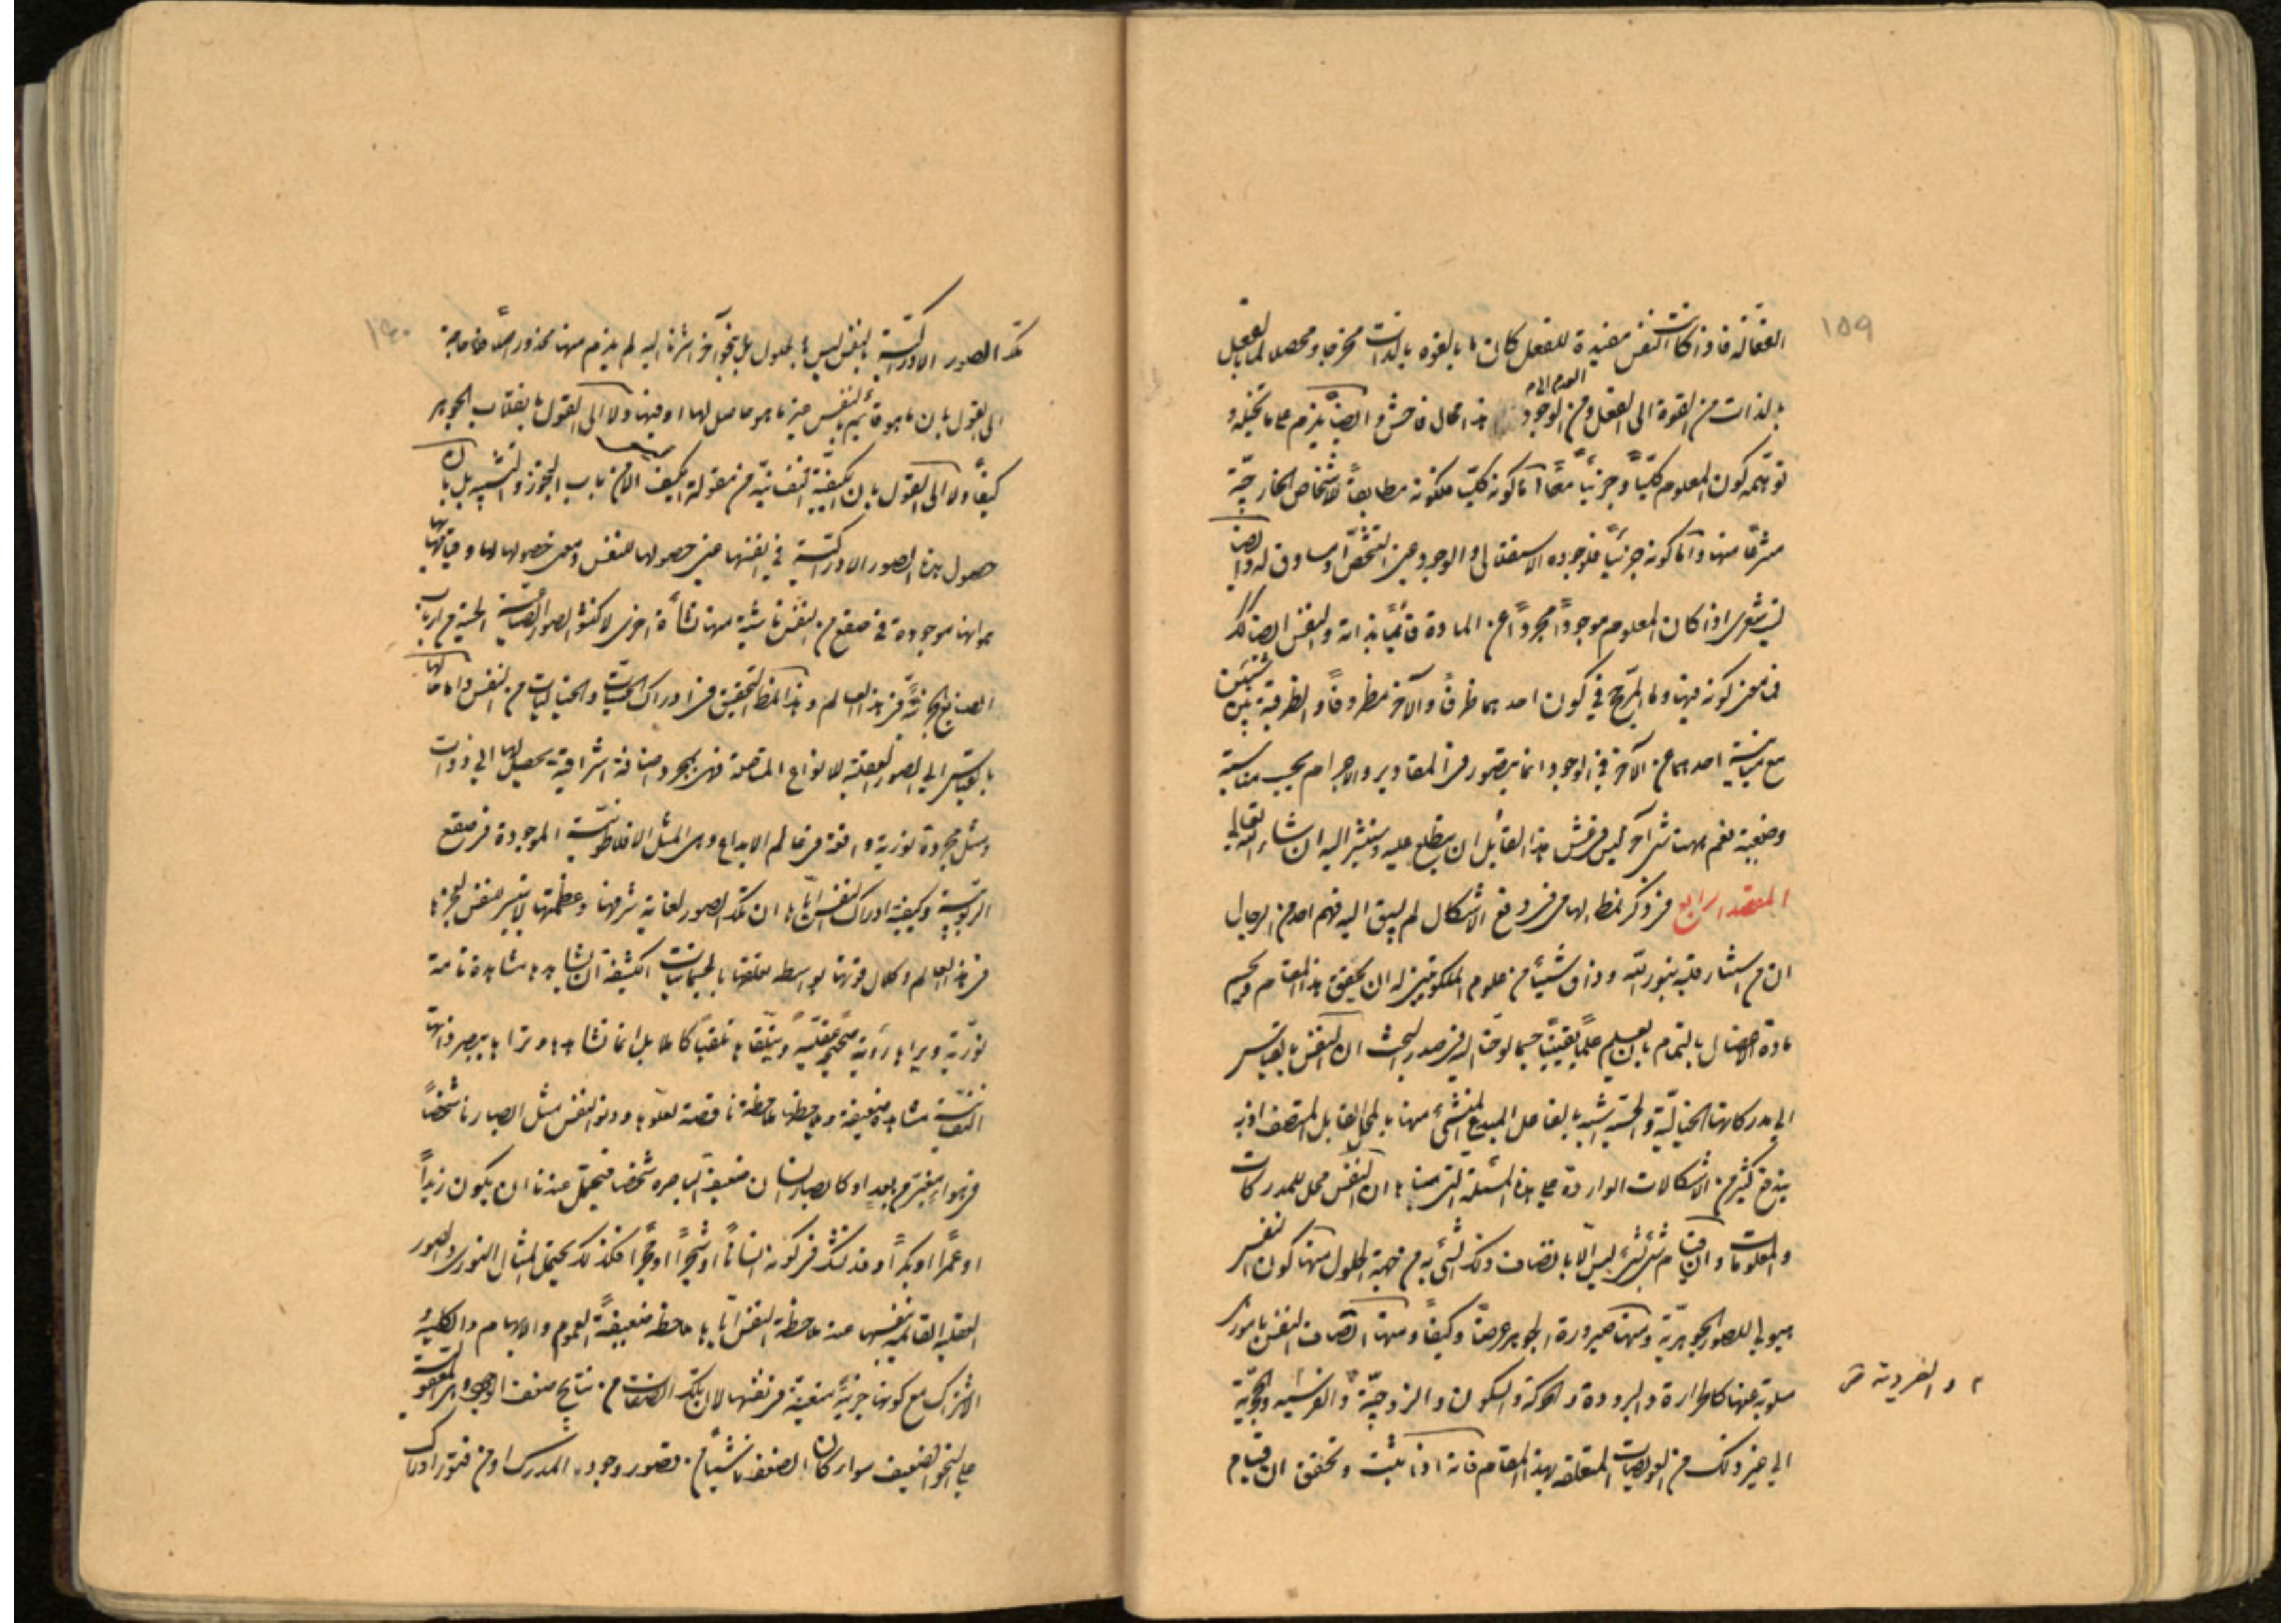 ۱۵۹
الفعالة فاذا كانت النفس مفيدة للفعل كان ما بالقوه بالذات مخرجا و محصلا لما بالفعل
بالذات من القوة الى الفعل و من العدم الى الوجود هذا محال فاحش و ايضا يلزم على ما تخيله و
توهمه كون المعلوم كليّاً و جزئيّاً معًا اما كونه كليّا فلكونه مطابقاً للاشخاص الخارجيّة
مشرقًا منها و اما كونه جزئياً فلوجوده الاستقلالى و الوجود عين التشخّص او مساوق له و ايضا
ليت شعرى اذا كان المعلوم موجوداً مجرداً عن المادة قائمًا بذاته و النفس ايضا كذلك
فما معنى كونه فيها و ما المرجّح فى كون احدهما ظرفًا و الآخر مظروفًا و الظرفية بين شيئين
مع مباينة احدهما عن الآخر فى الوجود انما يتصور فى المقادير و الاجرام بحسب مناسبة
وضعية نعم ههنا شئ آخر ليس فى شأن هذا القائل ان يطلع عليه و سنشير اليه ان شاء الله تعالى
المقصد الرابع فى ذكر نمط الهامى فى دفع الاشكال لم يسبق اليه فهم احد من الرجال
ان من استنار قلبه بنور الله و ذاق شيئاً من علوم الملكوتيين له ان يحقق هذا المقام و يحسم
مادة الاعضال بالتمام بان يعلم علماً يقينيّاً حسبما لوّحنا اليه فى صدر المبحث ان النفس بالقياس
الى مدركاتها الخياليّة و الحسيّة اشبه بالفاعل المبدع المنشئ منها بالمحل القابل المتصف اذ به
يندفع كثير من الاشكالات الواردة على هذه المسئلة التى مبناها ان النفس محل للمدركات
و المعلومات و ان قيام شئ بشئ ليس الا بالاتصاف و ذلك الشئ به من جهة الحلول منها كون النفس
هيولى للصور الجوهريّة و منها صيرورة الجوهر عرضًا و كيفًا و منها اتصاف النفس بامور
مسلوبة عنها كالحرارة و البرودة و الحركة و السكون و الزوجيّة و الفرسيه و الحجريّة
و الفردية ش
الى غير ذلك من العويصات المتعلقه بهذا المقام فانه اذا ثبت و تحقق ان قيام
۱۶۰
تلك الصور الادراكيّة بالنفس ليس بالحلول بل بنحو آخر اشرنا اليه لم يلزم منها محذور اصلاً فلا حاجة
الى القول بان ما هو قائم بالنفس غير ما هو حاصل لها او فيها و لا الى القول بانقلاب الجوهر
كيفًا و لا الى القول بان الكيفية النفسانيّه من مقولة الكيف الا من باب التجوز و التشبيه بل بان
حصول هذه الصور الادراكيّة فى انفسها عين حصولها للنفس و معنى حصولها لها و قيامها بها
انها موجودة فى صقع من النفس ناشئة منها نشأة اخرى لا كنشو الصور الصناعية الحسية من ارباب
الصنائع الجزئيّة فى هذا العالم و هذا نمط التحقيق فى ادراك الحسيّات و الخياليات من النفس و اما حالها
بالقياس الى الصور العقلية للانواع المتاصلة فهى بمجرد اضافة اشراقية تحصل لها الى ذوات
و مثل مجردة نورية واقعة فى عالم الابداع و هى المثل الافلاطونيّة الموجودة فى صقع
الربوبيّة و كيفية ادراك النفس اياها ان تلك الصور لغاية شرفها و عظمتها لا يتيسر للنفس لعجزها
فى هذا العالم و كلال قوتها بواسطه تعلقها بالجسمانيات الكثيفة ان تشاهدها مشاهدة تامة
نوريّة و يراها رؤية صحيحة عقليّة و يتلقاها تلقيًا كاملا بل انما تشاهدها و تراها ببصر ذاتها
النفسانيّة مشاهدة ضعيفة و يلاحظها ملاحظة ناقصة لعلوها و دنو النفس مثل ابصارنا شخصًا
فى هواء مغبّر من بعد او كابصار انسان ضعيف الباصرة شخصا فيحتمل عندنا ان يكون زيداً
او عمرًا او بكرًا و قد نشك فى كونه انسانًا او شجرًا او حجرًا فكذلك يحتمل المثال النورى و الصور
العقليه القائمة بنفسها عند ملاحظة النفس اياها ملاحظة ضعيفة العموم و الابهام و الكلية و
الاشتراك مع كونها جزئيّة متعينة فى نفسها لان تلك الصفات من نتايج ضعف الوجود و وهن المعقولية
على النحو الضعيف سواء كان الضعف ناشئًا من قصور وجود المدرك او من فتور ادراك